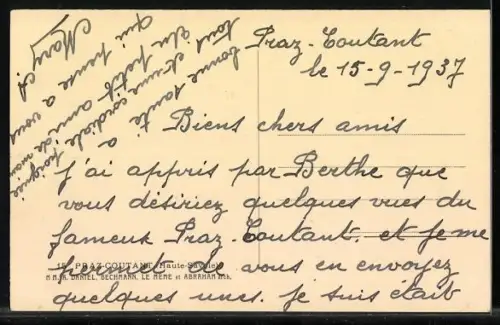 Praz-Coutant
le 15-9-1937
Biens chers amis
j'ai appris par Berthe que
vous désiriez quelques vues du
fameux Praz-Coutant. et je me
permet de vous en envoyez
quelques unes. je suis était
PRAZ-COUTANT (Haute-Savoie)
M.M. A. DANIEL, BECHMANN, LE MEME et ABRAHAM Arch.
bonne santé
tous d'une cordiale poignée
un petit ami de
qui pense a vous
Mary